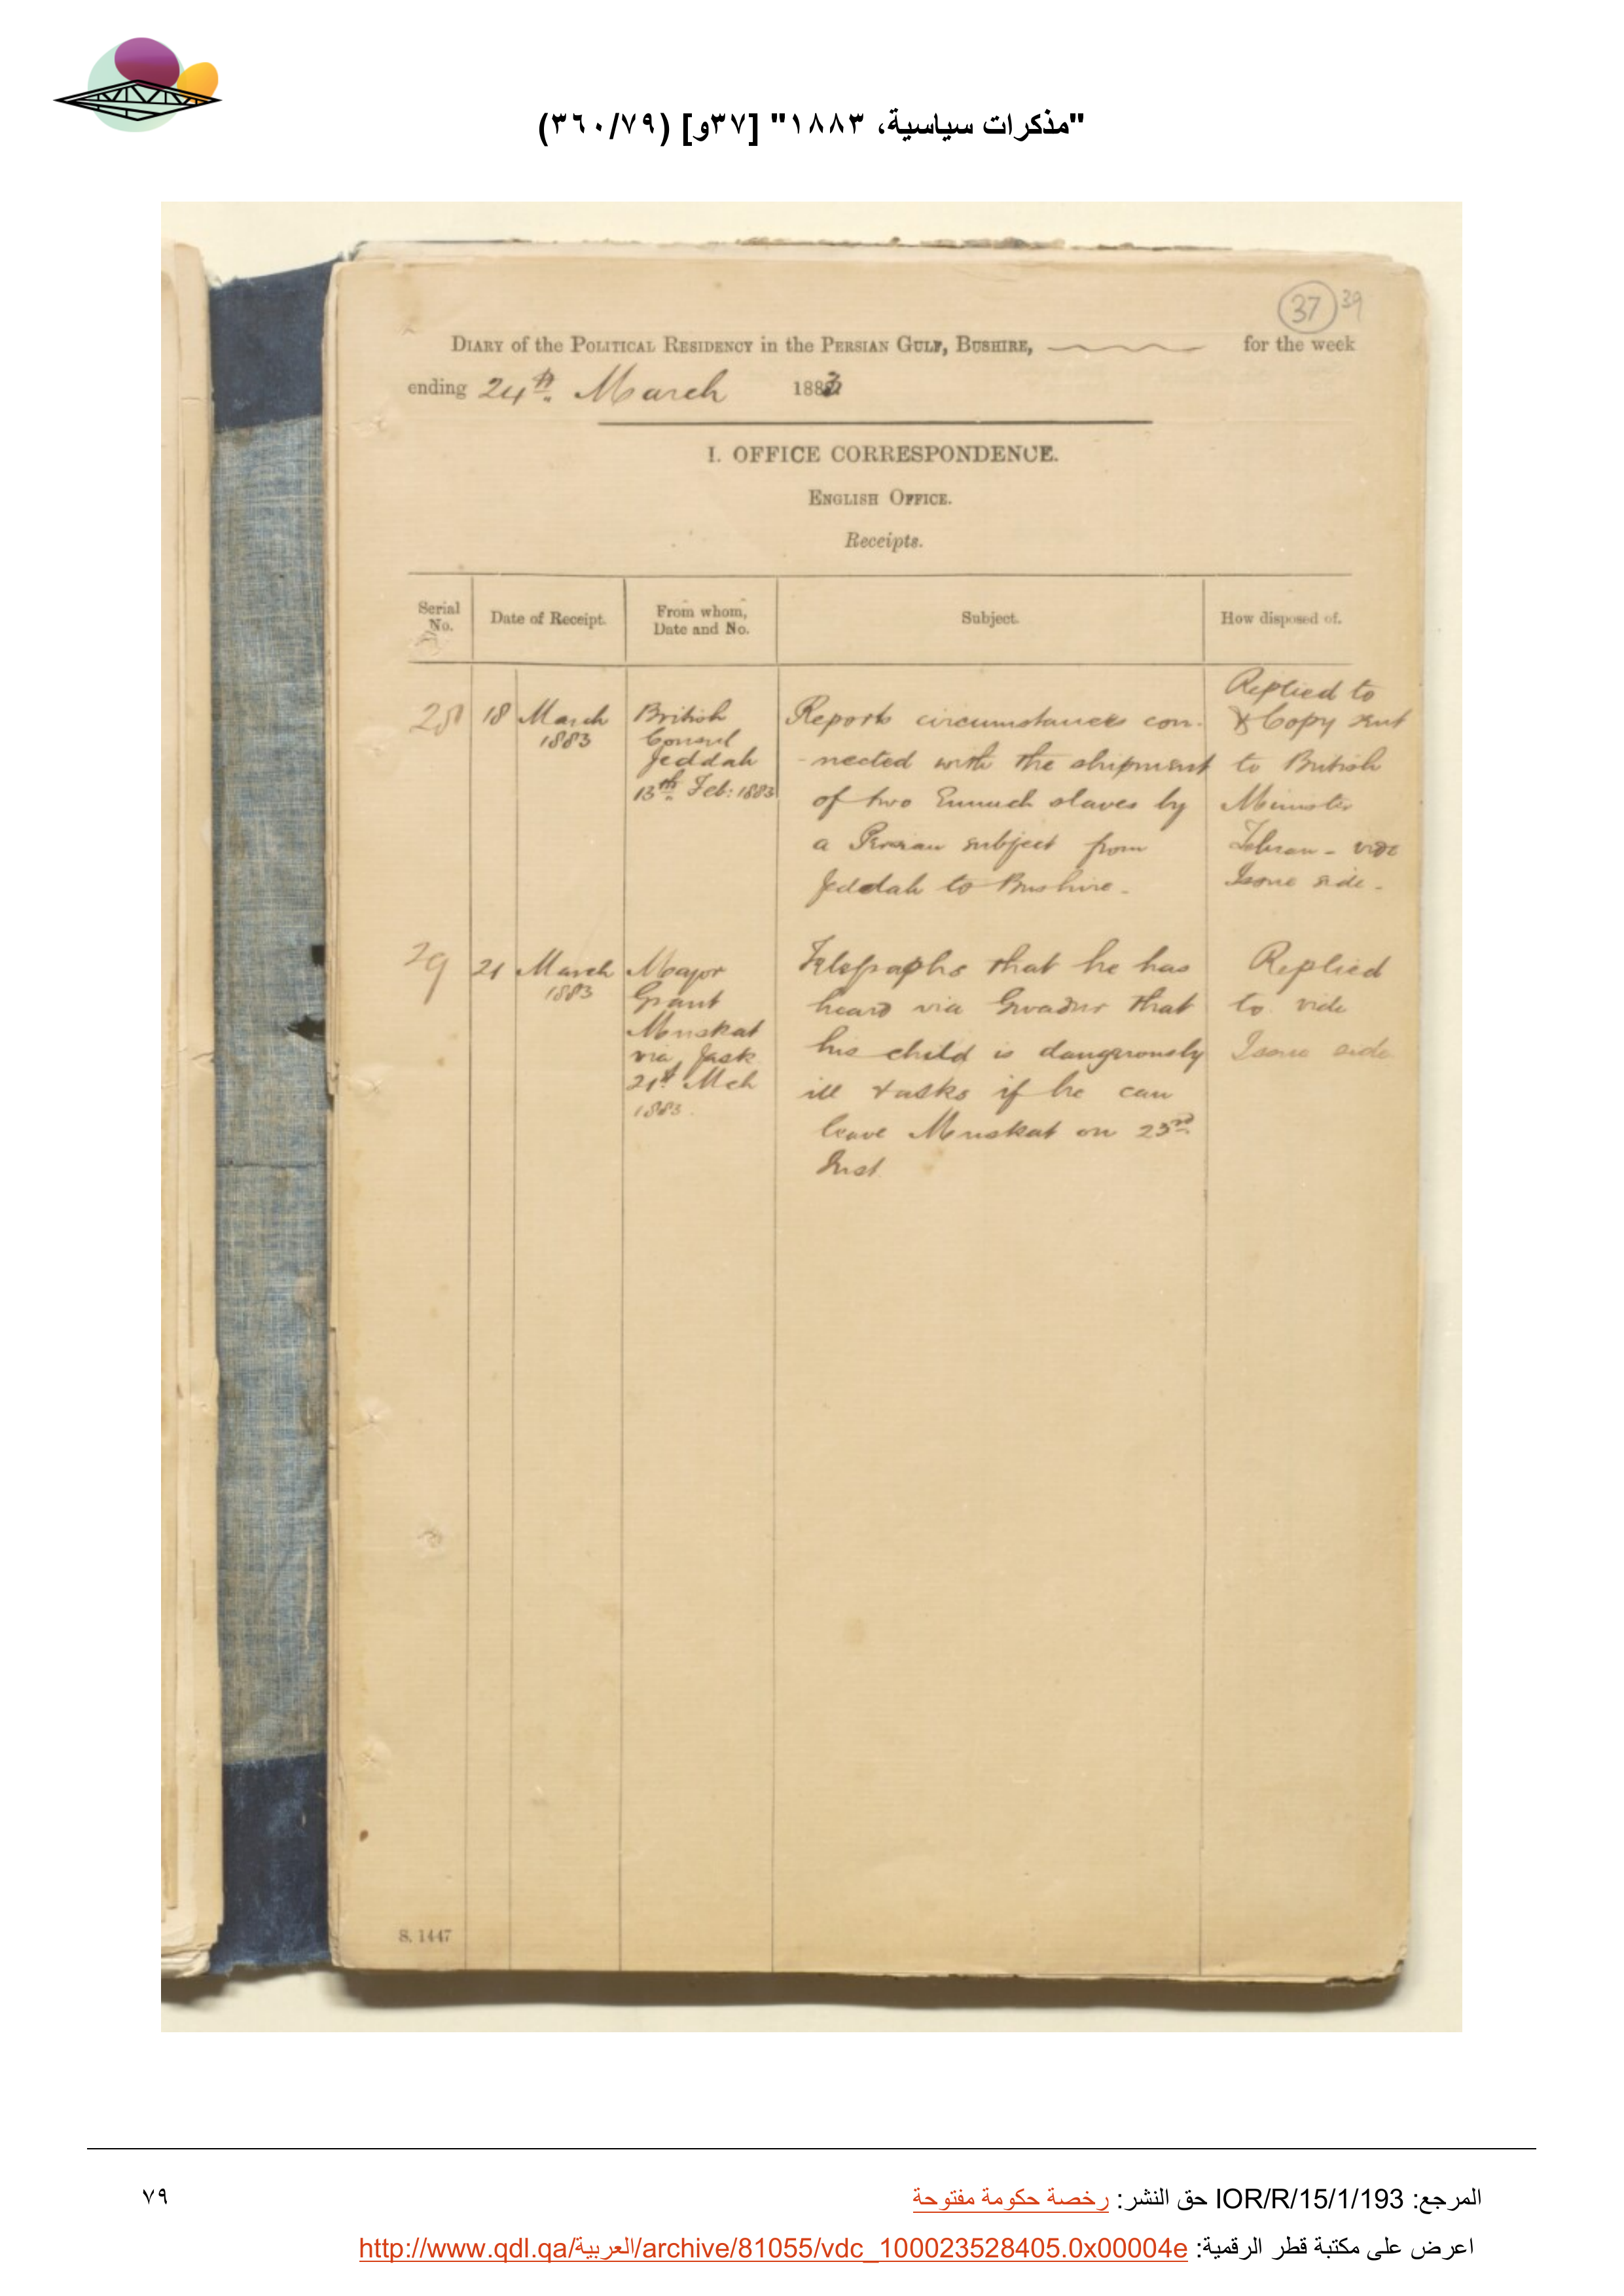 "مذكرات سياسية، ١٨٨٣" [٣٧و] (٣٦٠/٧٩)
37 39
DIARY of the POLITICAL RESIDENCY in the PERSIAN GULF, BUSHIRE, for the week
ending 24th March 1883
I. OFFICE CORRESPONDENCE.
ENGLISH OFFICE.
Receipts.
Serial No.
Date of Receipt.
From whom, Date and No.
Subject.
How disposed of.
28
18 March
1883
British
Consul
Jeddah
13th Feb: 1883
Reports circumstances con-
-nected with the shipment
of two Eunuch slaves by
a Persian subject from
Jeddah to Bushire -
Replied to
& Copy sent
to British
Minister
Tehran - vide
Issue side -
29
21 March
1883
Major
Grant
Muskat
via Jask
21st Mch
1883.
Telegraphs that he has
heard via Gwadur that
his child is dangerously
ill & asks if he can
leave Muskat on 23rd
Inst
Replied
to vide
Issue side
S. 1447
المرجع: IOR/R/15/1/193 حق النشر: رخصة حكومة مفتوحة
٧٩
اعرض على مكتبة قطر الرقمية: http://www.qdl.qa/العربية/archive/81055/vdc_100023528405.0x00004e